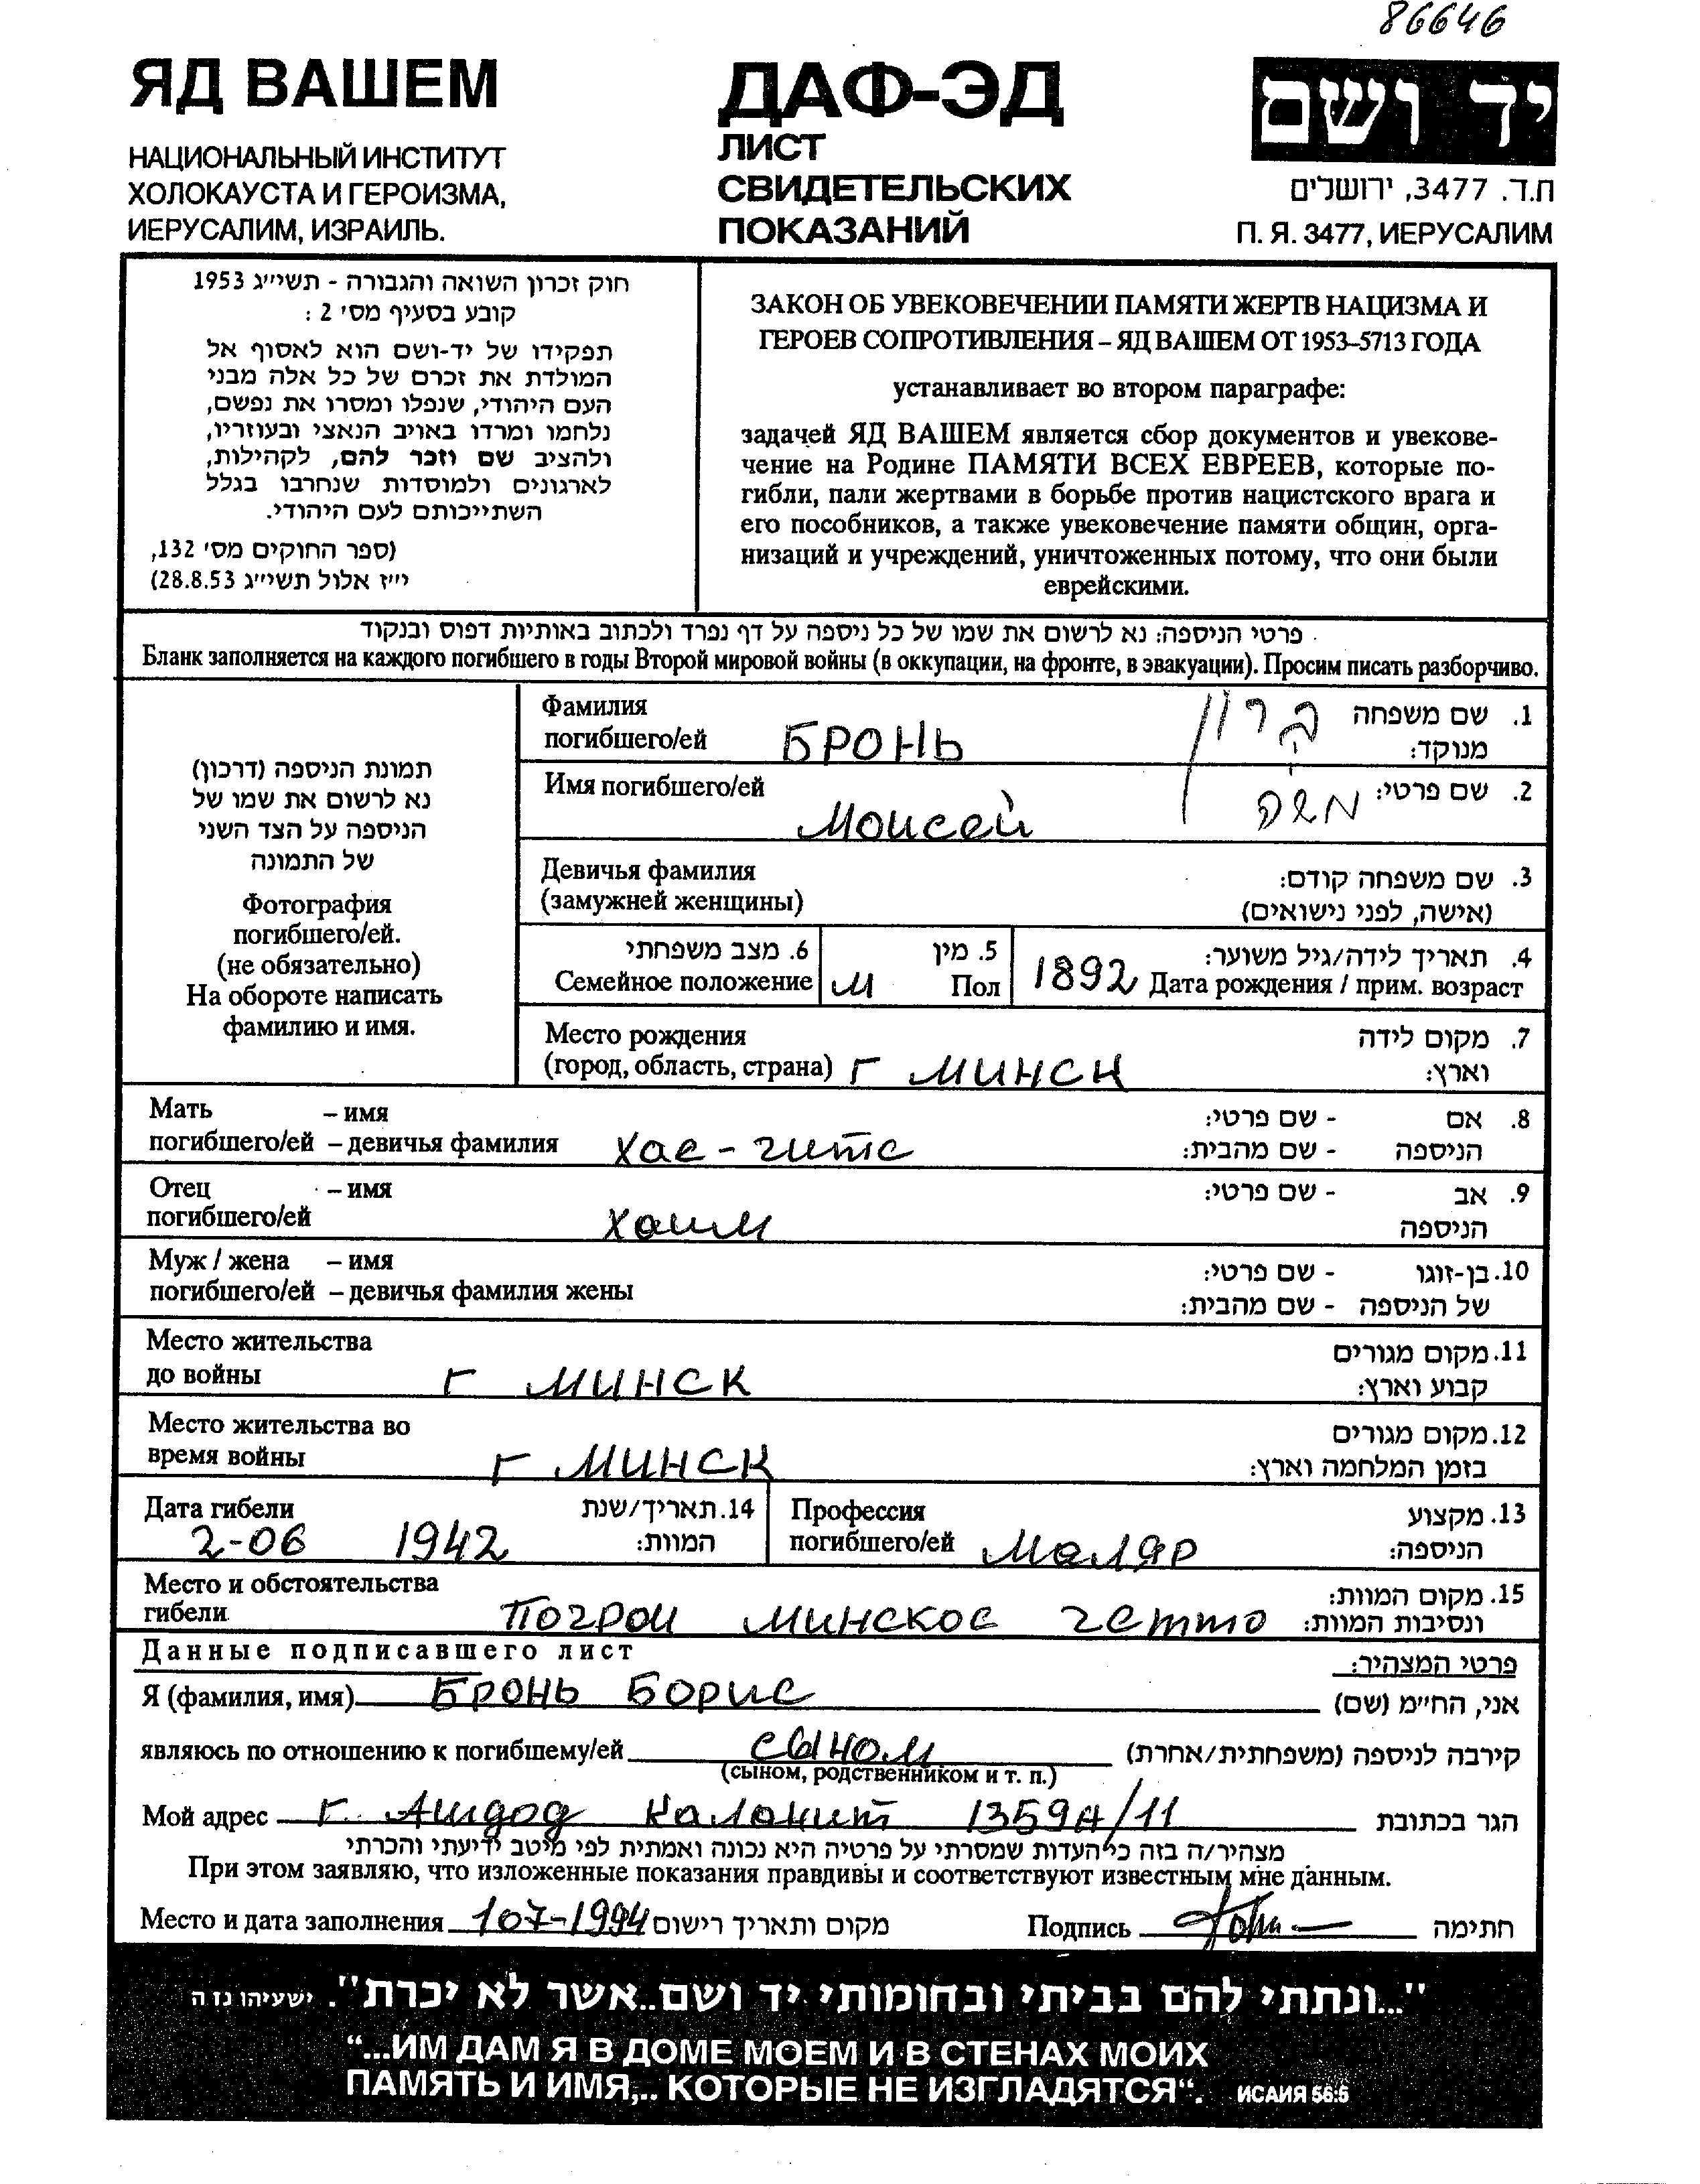 86646
ЯД ВАШЕМ
НАЦИОНАЛЬНЫЙ ИНСТИТУТ
ХОЛОКАУСТА И ГЕРОИЗМА,
ИЕРУСАЛИМ, ИЗРАИЛЬ.
ДАФ-ЭД
ЛИСТ
СВИДЕТЕЛЬСКИХ
ПОКАЗАНИЙ
יד ושם
ת.ד. 3477, ירושלים
П. Я. 3477, ИЕРУСАЛИМ
חוק זכרון השואה והגבורה - תשי״ג 1953
קובע בסעיף מס׳ 2 :
תפקידו של יד-ושם הוא לאסוף אל
המולדת את זכרם של כל אלה מבני
העם היהודי, שנפלו ומסרו את נפשם,
נלחמו ומרדו באויב הנאצי ובעוזריו,
ולהציב שם וזכר להם, לקהילות,
לארגונים ולמוסדות שנחרבו בגלל
השתייכותם לעם היהודי.
(ספר החוקים מס׳ 132,
י״ז אלול תשי״ג 28.8.53)
ЗАКОН ОБ УВЕКОВЕЧЕНИИ ПАМЯТИ ЖЕРТВ НАЦИЗМА И
ГЕРОЕВ СОПРОТИВЛЕНИЯ – ЯД ВАШЕМ ОТ 1953–5713 ГОДА
устанавливает во втором параграфе:
задачей ЯД ВАШЕМ является сбор документов и увекове-
чение на Родине ПАМЯТИ ВСЕХ ЕВРЕЕВ, которые по-
гибли, пали жертвами в борьбе против нацистского врага и
его пособников, а также увековечение памяти общин, орга-
низаций и учреждений, уничтоженных потому, что они были
еврейскими.
פרטי הניספה: נא לרשום את שמו של כל ניספה על דף נפרד ולכתוב באותיות דפוס ובנקוד
Бланк заполняется на каждого погибшего в годы Второй мировой войны (в оккупации, на фронте, в эвакуации). Просим писать разборчиво.
תמונת הניספה (דרכון)
נא לרשום את שמו של
הניספה על הצד השני
של התמונה
Фотография
погибшего/ей.
(не обязательно)
На обороте написать
фамилию и имя.
Фамилия
погибшего/ей БРОНЬ ברון 1. שם משפחה
מנוקד:
Имя погибшего/ей Моисей משה 2. שם פרטי:
Девичья фамилия 3. שם משפחה קודם:
(замужней женщины) (אישה, לפני נישואים)
6. מצב משפחתי 5. מין 4. תאריך לידה/גיל משוער:
Семейное положение М Пол 1892 Дата рождения / прим. возраст
Место рождения 7. מקום לידה
(город, область, страна) г МИНСК וארץ:
Мать – имя 8. אם - שם פרטי:
погибшего/ей – девичья фамилия Хае-гите הניספה - שם מהבית:
Отец – имя 9. אב - שם פרטי:
погибшего/ей Хаим הניספה
Муж / жена – имя 10. בן-זוגו - שם פרטי:
погибшего/ей – девичья фамилия жены של הניספה - שם מהבית:
Место жительства 11. מקום מגורים
до войны г МИНСК קבוע וארץ:
Место жительства во 12. מקום מגורים
время войны г МИНСК בזמן המלחמה וארץ:
Дата гибели 14. תאריך/שנת Профессия 13. מקצוע
2-06 1942 המוות: погибшего/ей Маляр הניספה:
Место и обстоятельства 15. מקום המוות:
гибели Погром минское гетто ונסיבות המוות:
Данные подписавшего лист פרטי המצהיר:
Я (фамилия, имя) БРОНЬ БОРИС אני, הח״מ (שם)
являюсь по отношению к погибшему/ей сыном קירבה לניספה (משפחתית/אחרת)
(сыном, родственником и т. п.)
Мой адрес г. Ашдод Каланит 1359А/11 הגר בכתובת
מצהיר/ה בזה כי העדות שמסרתי על פרטיה היא נכונה ואמתית לפי מיטב ידיעתי והכרתי
При этом заявляю, что изложенные показания правдивы и соответствуют известным мне данным.
Место и дата заполнения 107-1994 מקום ותאריך רישום Подпись חתימה
"...ונתתי להם בביתי ובחומותי יד ושם..אשר לא יכרת". ישעיהו נז ה
“...ИМ ДАМ Я В ДОМЕ МОЕМ И В СТЕНАХ МОИХ
ПАМЯТЬ И ИМЯ,.. КОТОРЫЕ НЕ ИЗГЛАДЯТСЯ“. ИСАИЯ 56:5